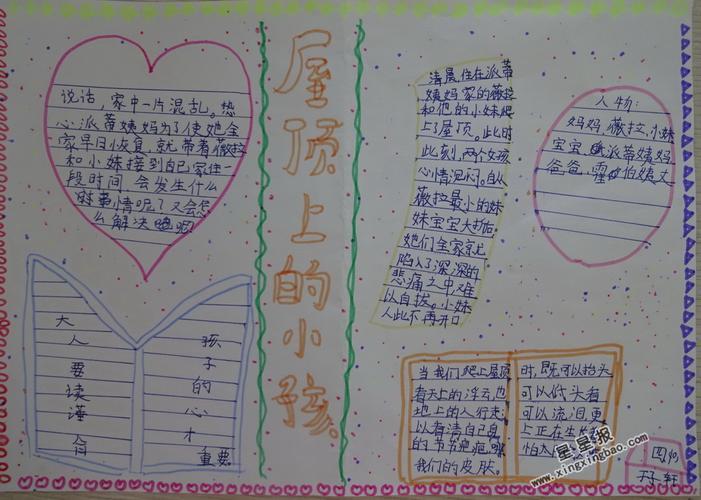 说话，家中一片混乱。热
心派蒂姨妈为了使她全
家早日恢复，就带着薇拉
和小妹接到自己家住一
段时间，会发生什么
事情呢？又会怎
么解决呢
大人要读懂
孩子的心才
重要
屋顶上的小孩。
清晨住在派蒂
姨妈家的薇拉
和她的小妹爬
上了屋顶。此时
此刻，两个女孩
心情沉闷。自从
薇拉最小的妹
妹宝宝夭折后。
她们全家就
陷入了深深的
悲痛之中难
以自拔。小妹
从此不再开口
人物：
妈妈，薇拉，小妹
宝宝，派蒂姨妈
爸爸，霍伯姨丈
当我们爬上屋顶
看天上的浮云也
地上的人行走
以看清自己身
的节节疤疤
我们的皮肤。
时，既可以抬头
可以低头看
可以流泪，更
上正在生长
怕太
四
子轩
星星报
www.xingxingbao.com